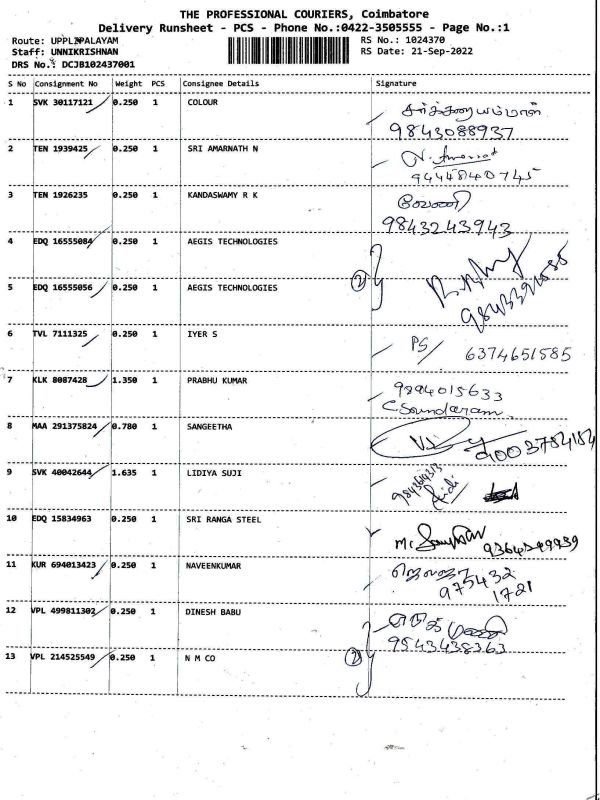 THE PROFESSIONAL COURIERS, Coimbatore
Delivery Runsheet - PCS - Phone No.:0422-3505555 - Page No.:1
Route: UPPLIPALAYAM RS No.: 1024370
Staff: UNNIKRISHNAN RS Date: 21-Sep-2022
DRS No.: DCJB102437001
S No Consignment No Weight PCS Consignee Details Signature
1 SVK 30117121 0.250 1 COLOUR
9843088937
2 TEN 1939425 0.250 1 SRI AMARNATH N
9444840745
3 TEN 1926235 0.250 1 KANDASWAMY R K வேணி
9843243943
4 EDQ 16555084 0.250 1 AEGIS TECHNOLOGIES
2
5 EDQ 16555056 0.250 1 AEGIS TECHNOLOGIES
6 TVL 7111325 0.250 1 IYER S PS/ 6374651585
7 KLK 8087428 1.350 1 PRABHU KUMAR 9894015633
C Soundaram
8 MAA 291375824 0.780 1 SANGEETHA
9003784184
9 SVK 40042644 1.635 1 LIDIYA SUJI
10 EDQ 15834963 0.250 1 SRI RANGA STEEL
11 KUR 694013423 0.250 1 NAVEENKUMAR
975432
1721
12 VPL 499811302 0.250 1 DINESH BABU
9543438363
13 VPL 214525549 0.250 1 N M CO 2